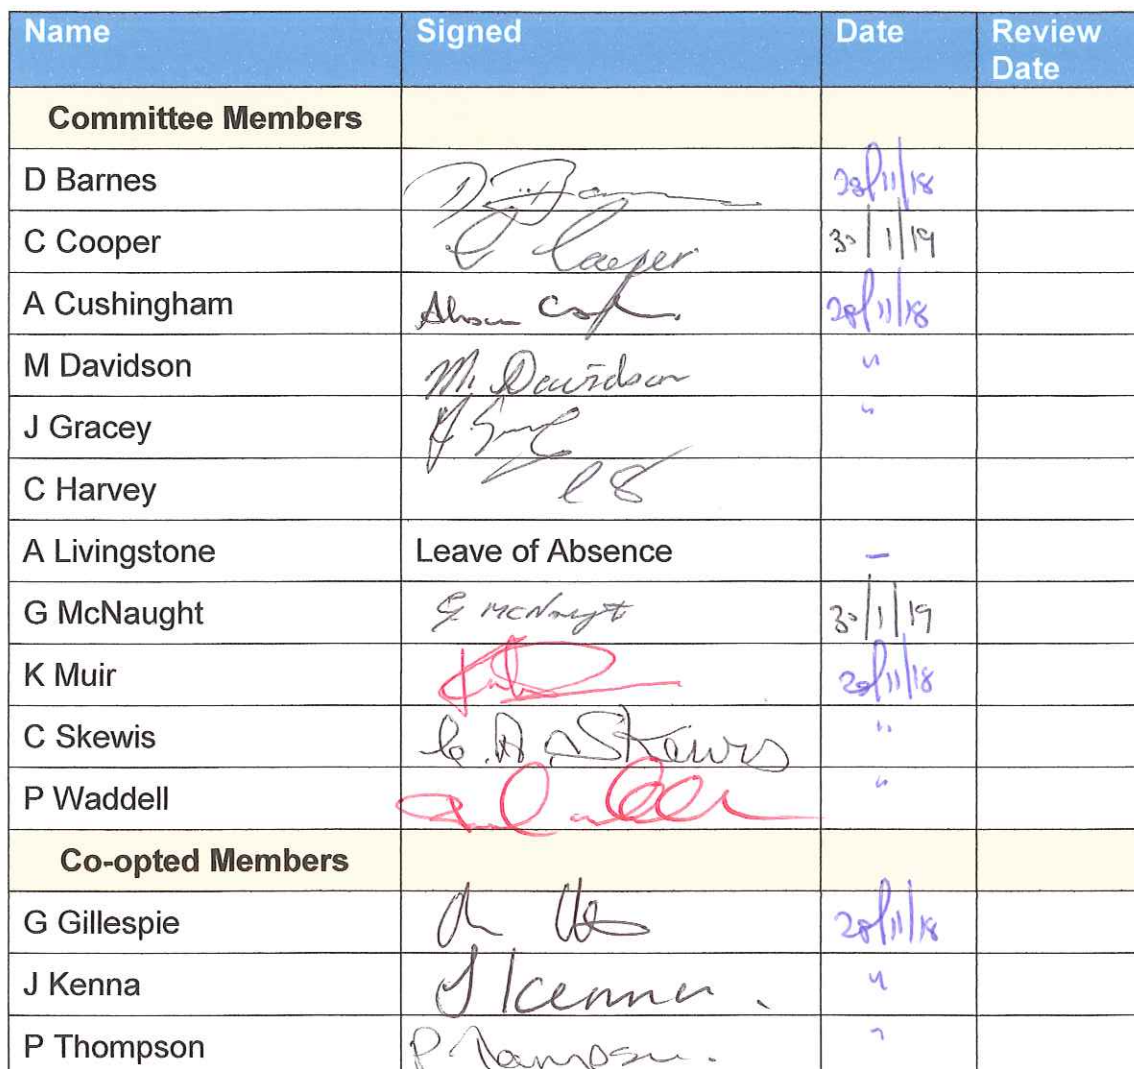 Name Signed Date Review Date
Committee Members
D Barnes 28/11/18
C Cooper C Cooper 30/1/19
A Cushingham 28/11/18
M Davidson M. Davidson "
J Gracey "
C Harvey
A Livingstone Leave of Absence -
G McNaught G McNaught 30/1/19
K Muir 28/11/18
C Skewis C. A Skewis "
P Waddell "
Co-opted Members
G Gillespie 28/11/18
J Kenna J Kenna. "
P Thompson P Thompson. "